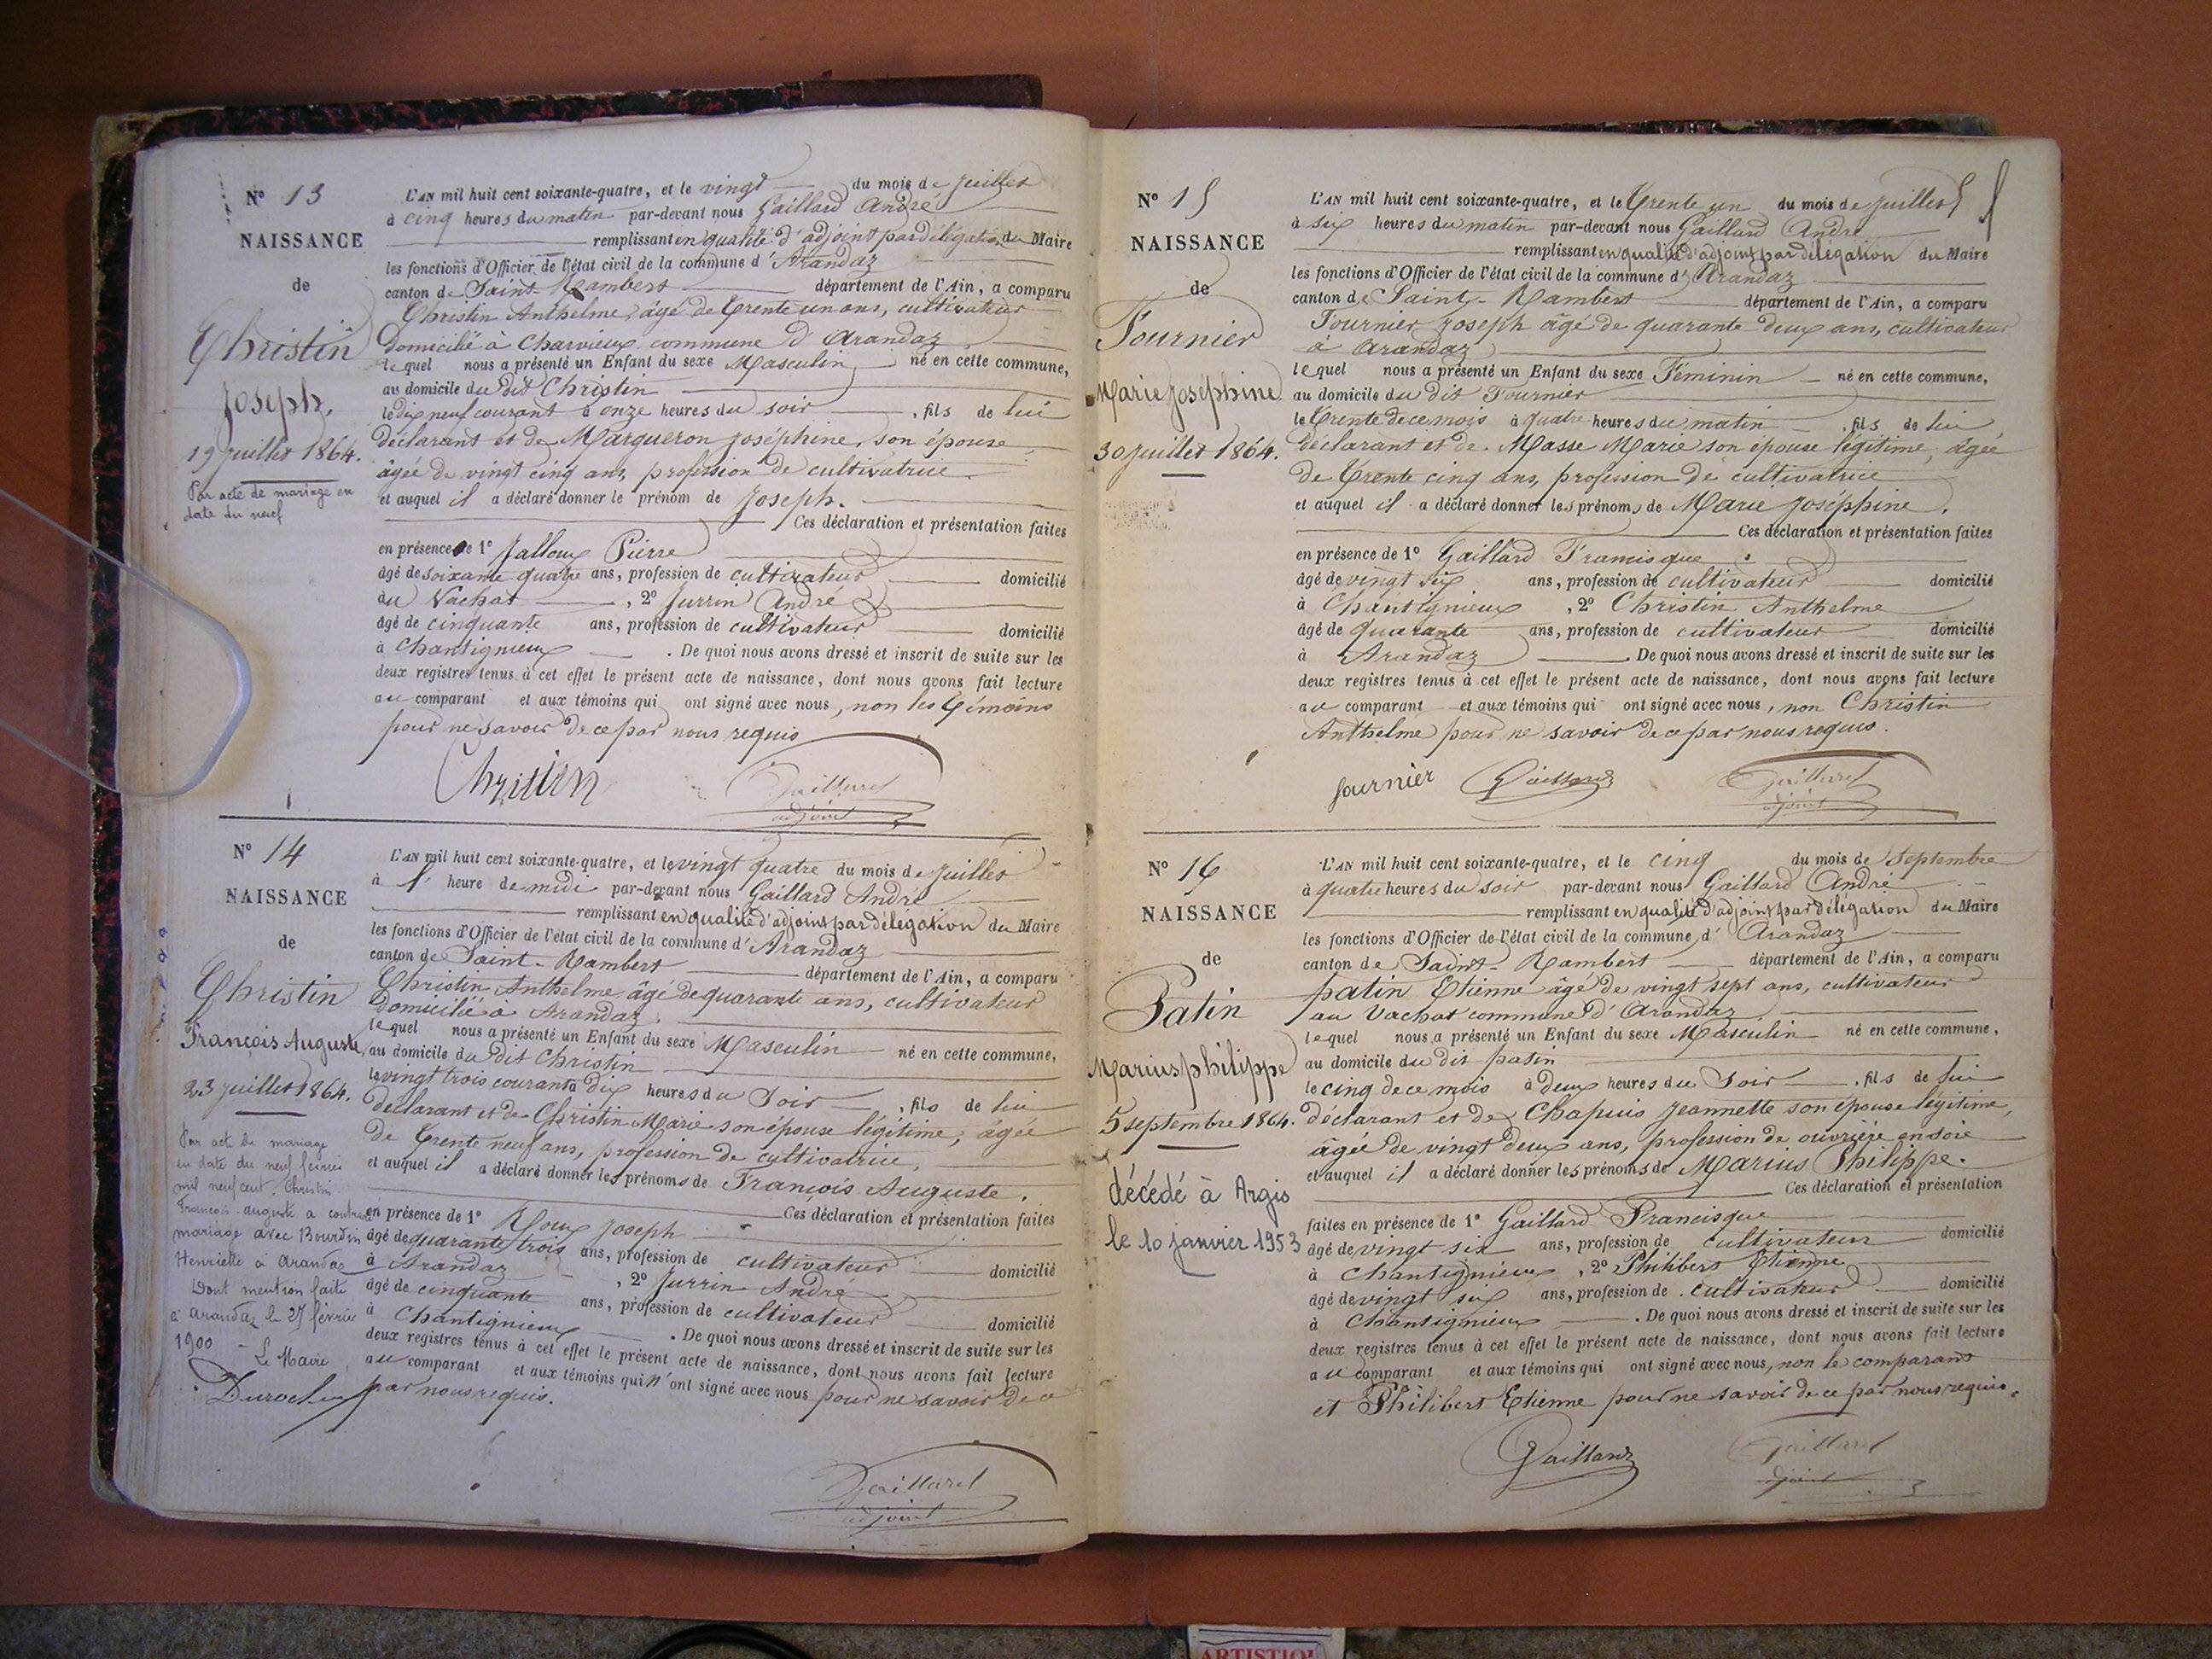 N° 13
NAISSANCE
de
Christin
Joseph.
19 juillet 1864.
Par acte de mariage en
date du neuf
L'AN mil huit cent soixante-quatre, et le vingt du mois de juillet
à cinq heures du matin par-devant nous Gaillard André
remplissant en qualité d'adjoint par délégation du Maire
les fonctions d'Officier de l'état civil de la commune d'Arandaz
canton de Saint-Rambert département de l'Ain, a comparu
Christin Anthelme, âgé de trente un ans, cultivateur
domicilié à Charvieux commune d'Arandaz
lequel nous a présenté un Enfant du sexe Masculin né en cette commune,
au domicile du dit Christin
le dix neuf courant à onze heures du soir, fils de lui
déclarant et de Margueron Joséphine, son épouse
âgée de vingt cinq ans, profession de cultivatrice.
et auquel il a déclaré donner le prénom de Joseph.
Ces déclaration et présentation faites
en présence de 1° Jalloux Pierre
âgé de soixante quatre ans, profession de cultivateur domicilié
au Vachat, 2° Jurrin André
âgé de cinquante ans, profession de cultivateur domicilié
à Chantignieux. De quoi nous avons dressé et inscrit de suite sur les
deux registres tenus à cet effet le présent acte de naissance, dont nous avons fait lecture
au comparant et aux témoins qui ont signé avec nous, non les témoins
pour ne savoir de ce par nous requis
Christin Gaillard
adjoint
N° 14
NAISSANCE
de
Christin
François Auguste
23 juillet 1864.
Par acte de mariage
en date du neuf février
mil neuf cent, Christin
François-Auguste a contracté
mariage avec Bourdin
Henriette à Arandaz
Dont mention faite
à Arandaz le 27 février
1900 - Le Maire,
L'AN mil huit cent soixante-quatre, et le vingt quatre du mois de juillet
à 1 heure de midi par-devant nous Gaillard André
remplissant en qualité d'adjoint par délégation du Maire
les fonctions d'Officier de l'état civil de la commune d'Arandaz
canton de Saint-Rambert département de l'Ain, a comparu
Christin Anthelme âgé de quarante ans, cultivateur
domicilié à Arandaz.
lequel nous a présenté un Enfant du sexe Masculin né en cette commune,
au domicile du dit Christin
le vingt trois courant à dix heures du Soir, fils de lui
déclarant et de Christin Marie son épouse légitime, âgée
de trente neuf ans, profession de cultivatrice,
et auquel il a déclaré donner les prénoms de François Auguste.
Ces déclaration et présentation faites
en présence de 1° Roux Joseph
âgé de quarante trois ans, profession de cultivateur domicilié
à Arandaz, 2° Jurrin André
âgé de cinquante ans, profession de cultivateur domicilié
à Chantignieux. De quoi nous avons dressé et inscrit de suite sur les
deux registres tenus à cet effet le présent acte de naissance, dont nous avons fait lecture
au comparant et aux témoins qui n'ont signé avec nous pour ne savoir de ce
par nous requis.
Gaillard
adjoint
N° 15
NAISSANCE
de
Fournier
Marie Joséphine
30 juillet 1864.
L'AN mil huit cent soixante-quatre, et le trente un du mois de juillet
à six heures du matin par-devant nous Gaillard André
remplissant en qualité d'adjoint par délégation du Maire
les fonctions d'Officier de l'état civil de la commune d'Arandaz
canton de Saint-Rambert département de l'Ain, a comparu
Fournier Joseph âgé de quarante deux ans, cultivateur
à Arandaz
lequel nous a présenté un Enfant du sexe Féminin né en cette commune,
au domicile du dit Fournier
le trente de ce mois à quatre heures du matin, fils de lui
déclarant et de Masse Marie son épouse légitime, âgée
de trente cinq ans, profession de cultivatrice
et auquel il a déclaré donner les prénoms de Marie Joséphine.
Ces déclaration et présentation faites
en présence de 1° Gaillard Francisque
âgé de vingt six ans, profession de cultivateur domicilié
à Chantignieux, 2° Christin Anthelme
âgé de quarante ans, profession de cultivateur domicilié
à Arandaz. De quoi nous avons dressé et inscrit de suite sur les
deux registres tenus à cet effet le présent acte de naissance, dont nous avons fait lecture
au comparant et aux témoins qui ont signé avec nous, non Christin
Anthelme pour ne savoir de ce par nous requis.
fournier Gaillard Gaillard
adjoint
N° 16
NAISSANCE
de
Patin
Marius philippe
5 septembre 1864.
décédé à Argis
le 10 janvier 1953
L'AN mil huit cent soixante-quatre, et le cinq du mois de Septembre
à quatre heures du soir par-devant nous Gaillard André
remplissant en qualité d'adjoint par délégation du Maire
les fonctions d'Officier de l'état civil de la commune d'Arandaz
canton de Saint-Rambert département de l'Ain, a comparu
patin Etienne âgé de vingt sept ans, cultivateur
au Vachat commune d'Arandaz
lequel nous a présenté un Enfant du sexe Masculin né en cette commune,
au domicile du dit patin
le cinq de ce mois à deux heures du Soir, fils de lui
déclarant et de Chapuis Jeannette son épouse légitime,
âgée de vingt deux ans, profession de ouvrière en soie
et auquel il a déclaré donner les prénoms de Marius Philippe.
Ces déclaration et présentation
faites en présence de 1° Gaillard Francisque
âgé de vingt six ans, profession de cultivateur domicilié
à Chantignieux, 2° Philibert Etienne
âgé de vingt six ans, profession de cultivateur domicilié
à Chantignieux. De quoi nous avons dressé et inscrit de suite sur les
deux registres tenus à cet effet le présent acte de naissance, dont nous avons fait lecture
au comparant et aux témoins qui ont signé avec nous, non le comparant
et Philibert Etienne pour ne savoir de ce par nous requis.
Gaillard Gaillard
adjoint